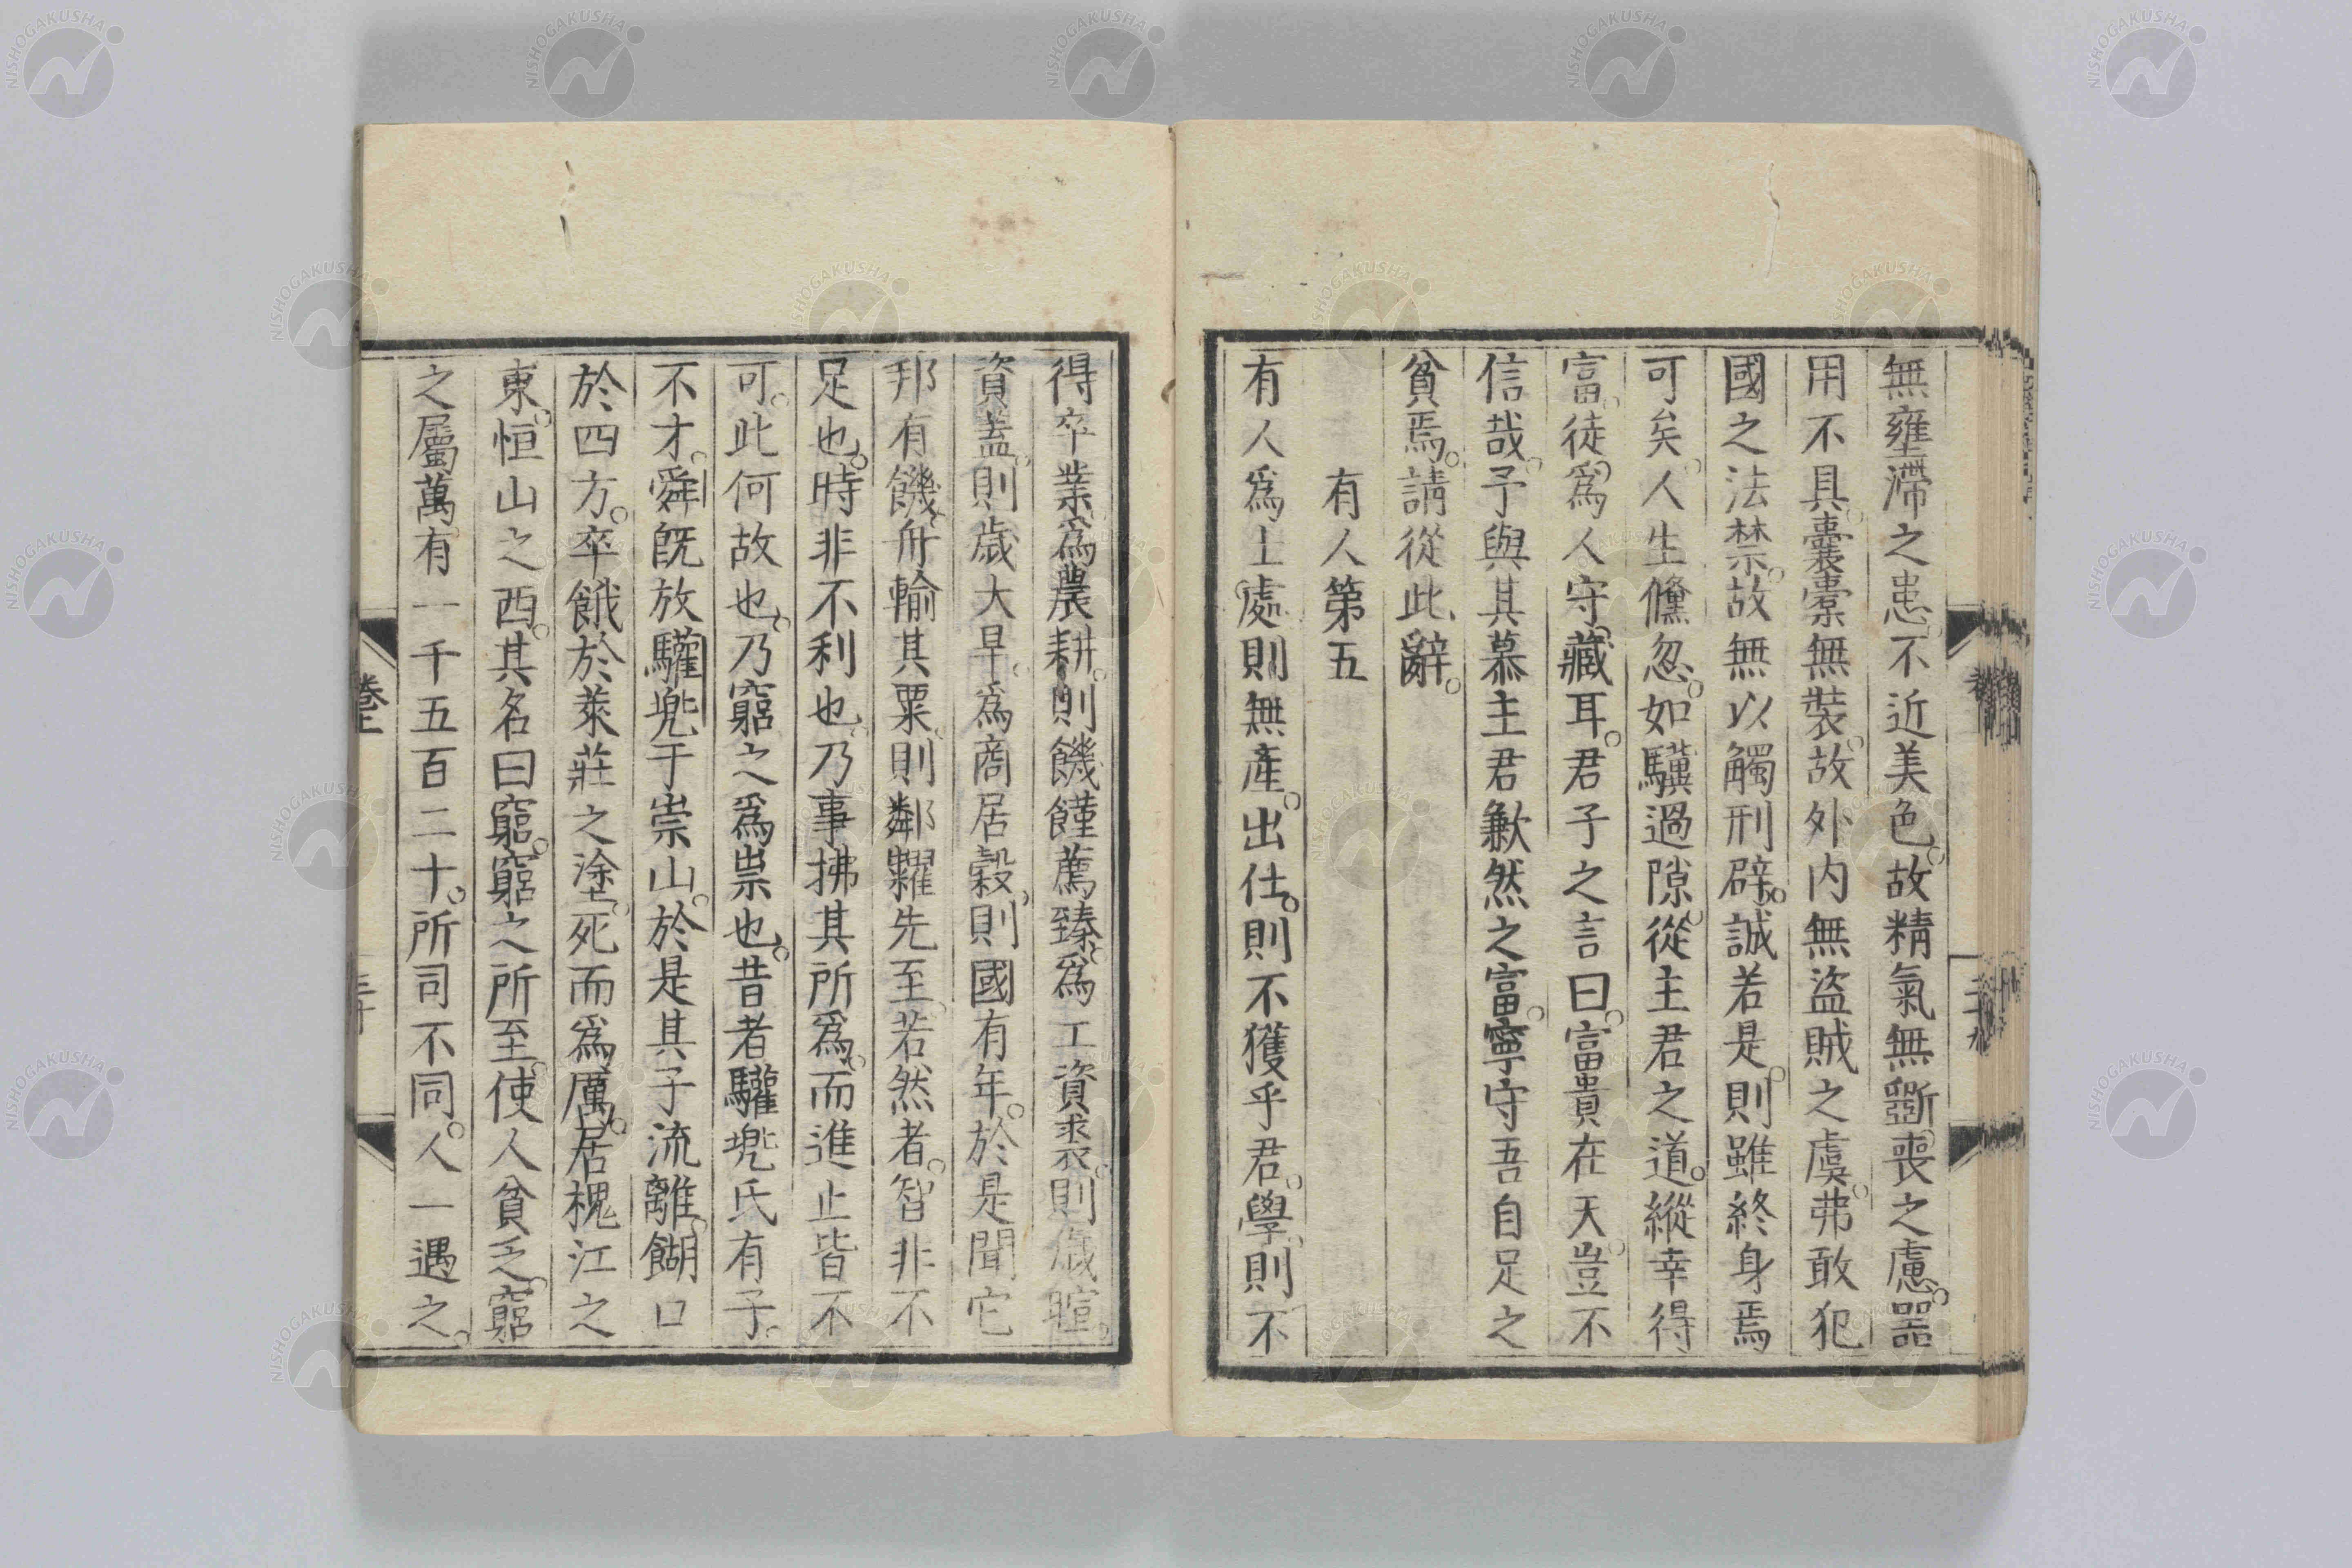 無壅滯之患。不近美色。故精氣無斵喪之慮。器
用不具。囊橐無裝。故外內無盜賊之虞。弗敢犯
國之法禁。故無以觸刑辟。誠若是。則雖終身焉
可矣。人生儵忽。如驥過隙。從主君之道。縱幸得
富。徒爲人守藏耳。君子之言曰。富貴在天。豈不
信哉。予與其慕主君歉然之富。寧守吾自足之
貧焉。請從此辭。
有人第五
有人爲士。處則無產。出仕。則不獲乎君。學。則不
得卒業。爲農耕。則饑饉薦臻。爲工資裘。則歲暄。
資蓋。則歲大旱。爲商居穀。則國有年。於是聞它
邦有饑。舟輸其粟。則鄰糶先至。若然者。智非不
足也。時非不利也。乃事拂其所爲。而進止皆不
可。此何故也。乃窮之爲祟也。昔者驩兜氏有子。
不才。舜既放驩兜于崇山。於是其子流離。餬口
於四方。卒餓於萊莊之塗。死而爲厲。居槐江之
東。恒山之西。其名曰窮。窮之所至。使人貧乏。窮
之屬萬有一千五百二十。所司不同。人一遇之。
卷上
NISHOGAKUSHA